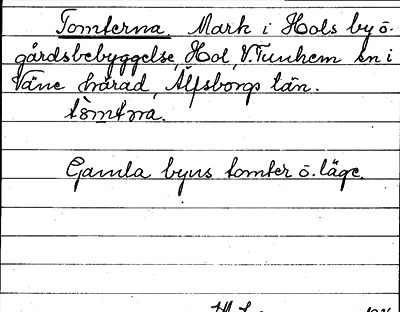 Tomterna Mark i Hols by ö.
gårdsbebyggelse, Hol, V.Tunhem sn i
Väne härad, Älfsborgs län.
tòmtṇa.
Gamla byns tomter ö. läge.